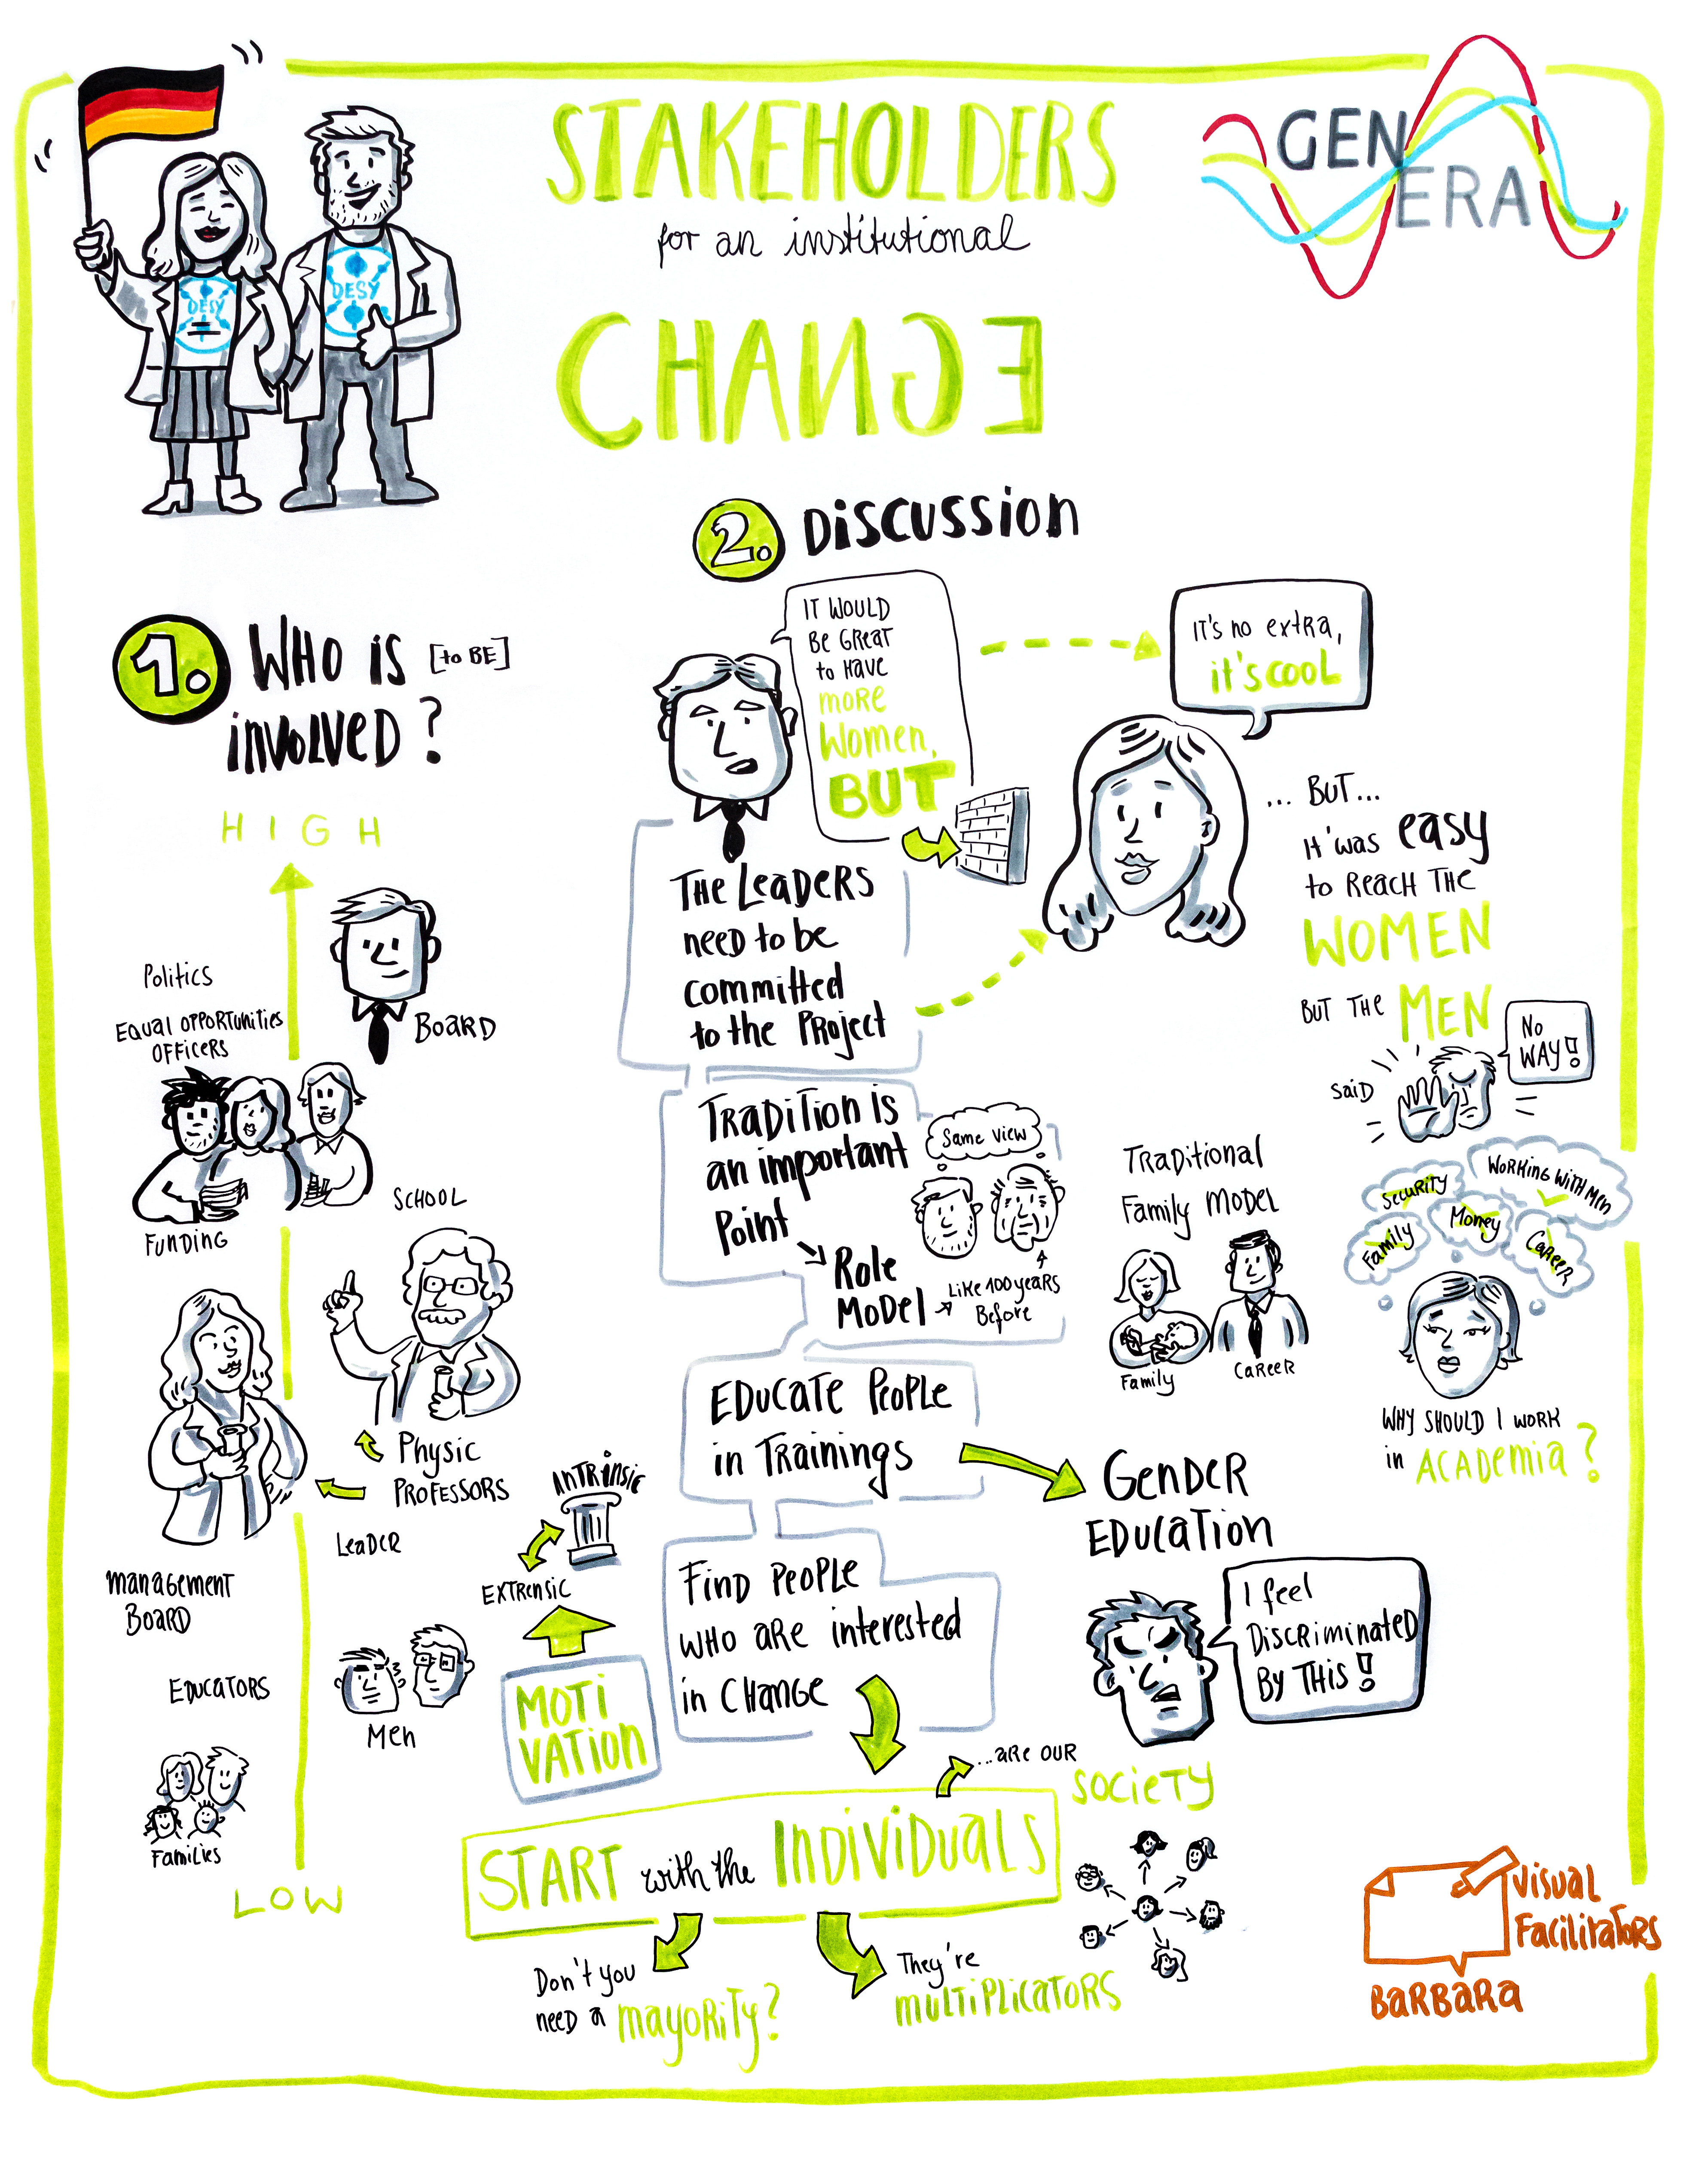 STAKEHOLDERS
for an institutional
CHANGE
GEN
ERA
DESY
DESY
1. WHO is [to BE]
involved?
HIGH
Politics
BOARD
EQUAL OPPORTUnities
OFFICERS
SCHOOL
FUNDING
Physic
PROFESSORS
LeaDER
management
BOARD
EDUCATORS
Men
Families
LOW
2. Discussion
IT WOULD
BE GREAT
to HAVE
moRE
Women,
BUT
IT'S no extRA,
it's cooL
... BUT...
it was easy
to REACH THE
WOMEN
BUT THE MEN
SAID
No
WAY!
THE LEADERS
neeD to be
committed
to the PROJect
TRADITION is
an important
Point
Role
MoDel
Same view
Like 100 years
Before
TRADitional
Family MoDel
Family
CAREER
Security
WORKING WITH MEN
Family
Money
CAREER
WHY SHOULD I WORK
in ACADemia?
EDUCATE PeoPle
in TRainings
GenDER
EDUCATION
I feel
DiSCRiminateD
BY THIS!
AnTRinsic
EXTRensic
MOTI
VATION
FinD PeoPle
WHO ARE interesteD
in CHAnGe
...aRe OUR
SOCieTY
START with the InDiViDuALS
Don't you
neeD a mayoRiTy?
They're
muLTiPLiCATORS
Visual
FaciliTaToRS
BARBARA